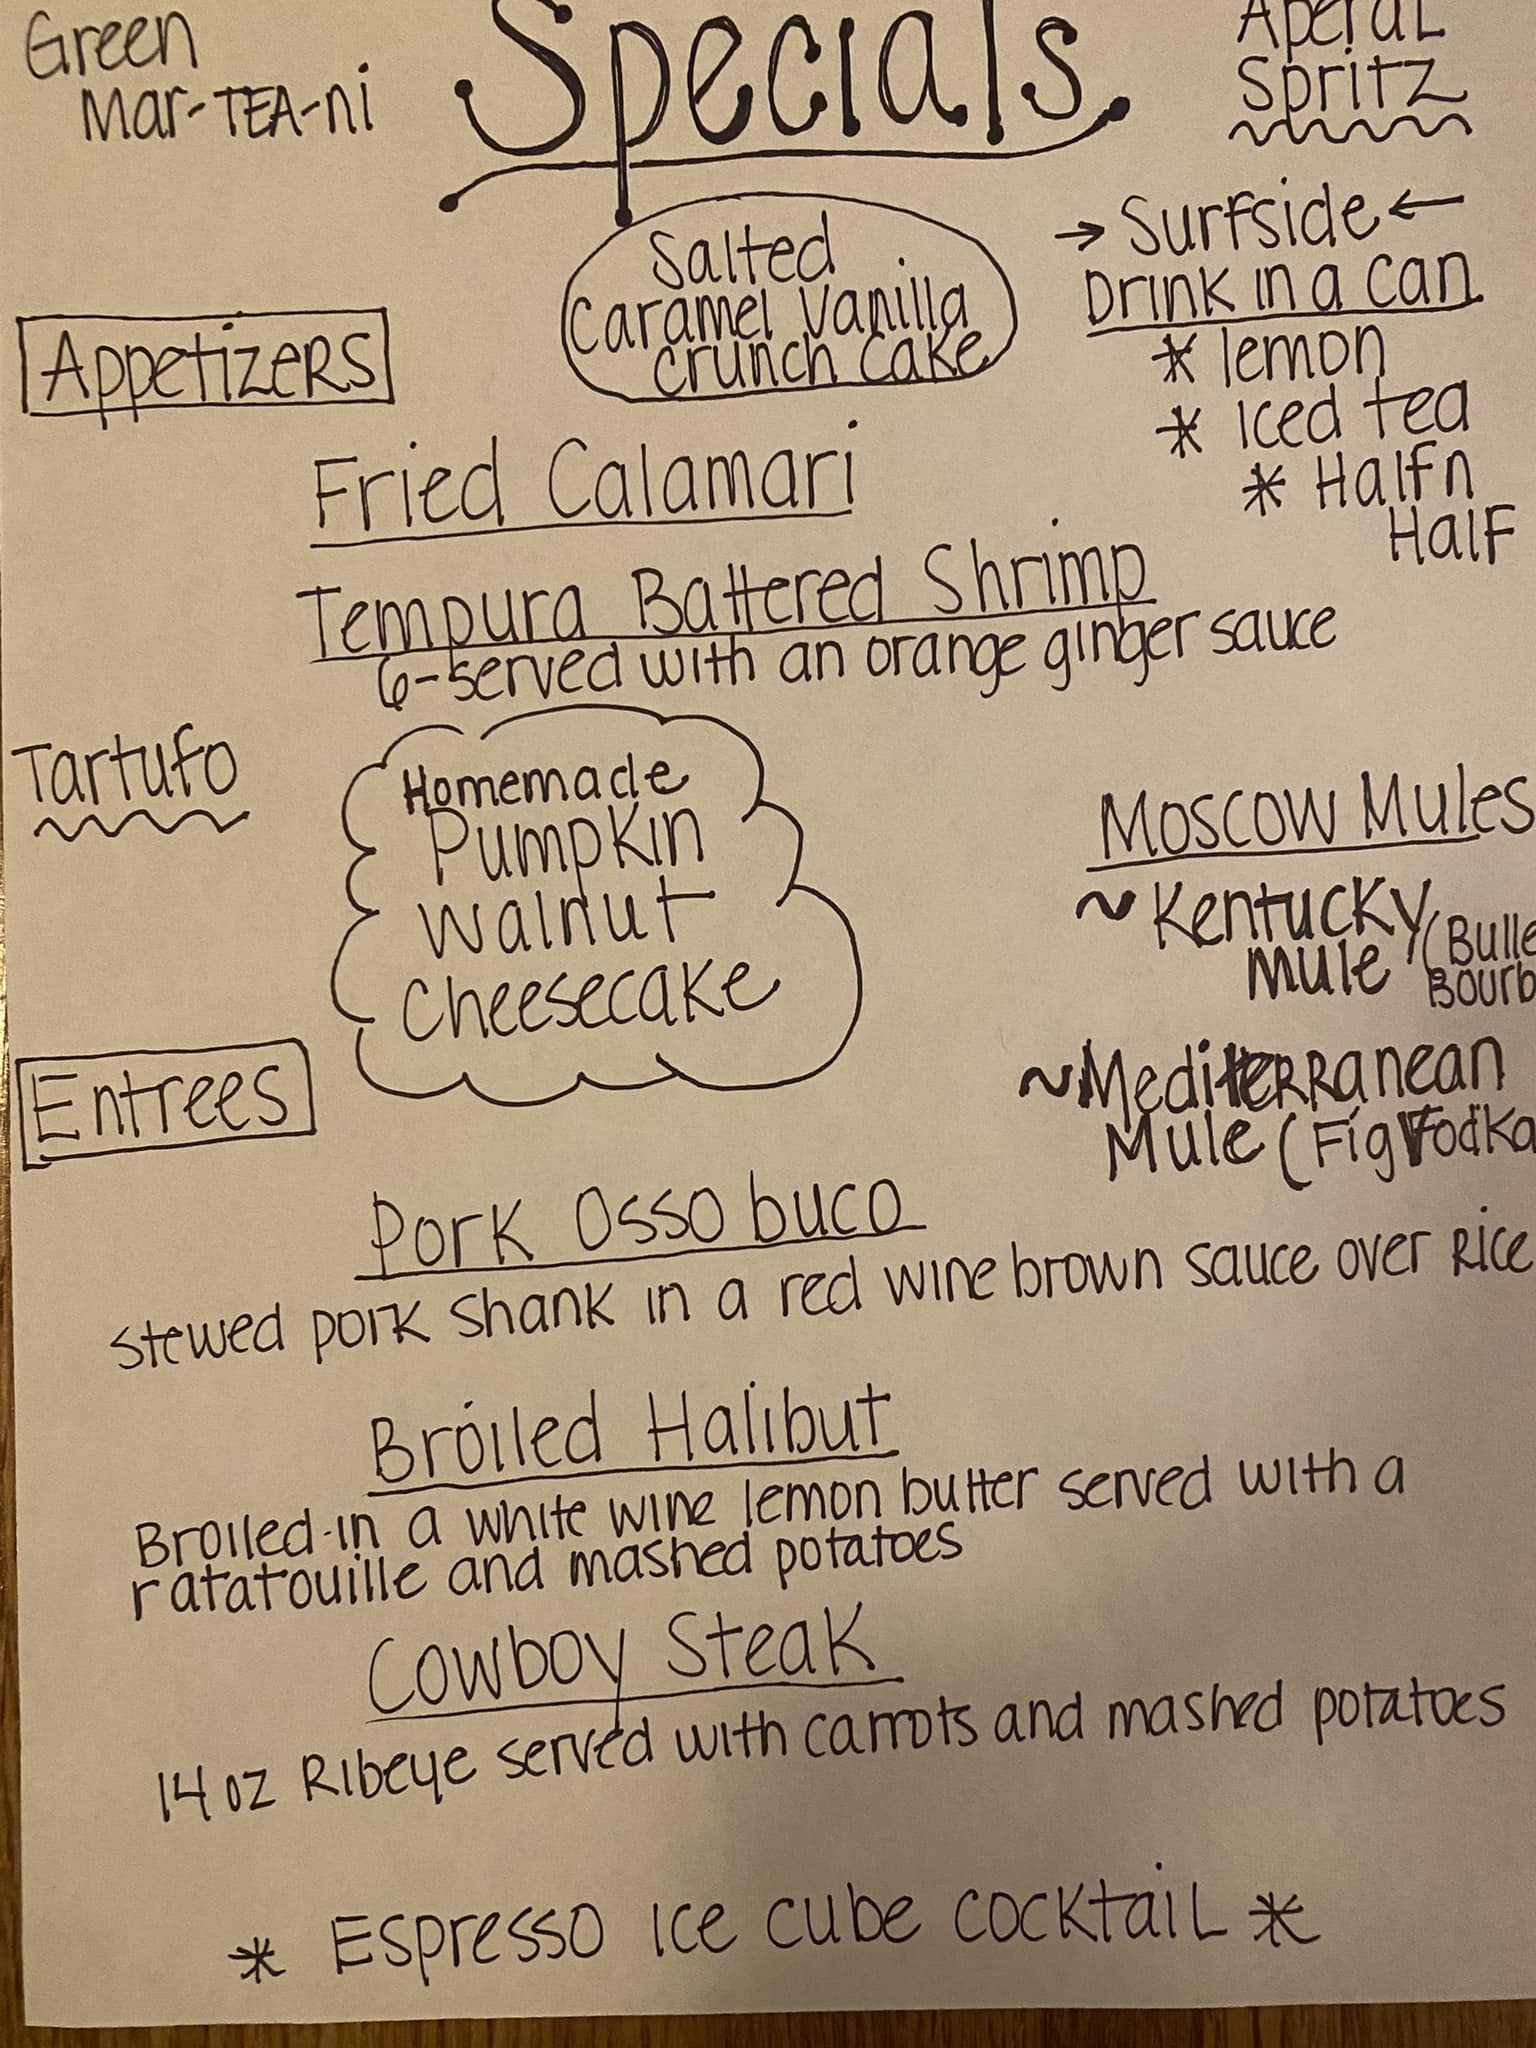 Green
Mar-TEA-ni
Specials
Aperal
Spritz
Salted
Caramel Vanilla
crunch cake
→ Surfside ←
Drink in a can
* lemon
* Iced tea
* Half n
Half
Appetizers
Fried Calamari
Tempura Battered Shrimp
6-served with an orange ginger sauce
Tartufo
Homemade
Pumpkin
Walnut
Cheesecake
Moscow Mules
~ Kentucky
Mule (Bulle
Bourb
~ Mediterranean
Mule (Fig Vodka
Entrees
Pork Osso buco
Stewed pork shank in a red wine brown sauce over rice
Broiled Halibut
Broiled in a white wine lemon butter served with a
ratatouille and mashed potatoes
Cowboy Steak
14 oz Ribeye served with carrots and mashed potatoes
* Espresso Ice cube cocktail *